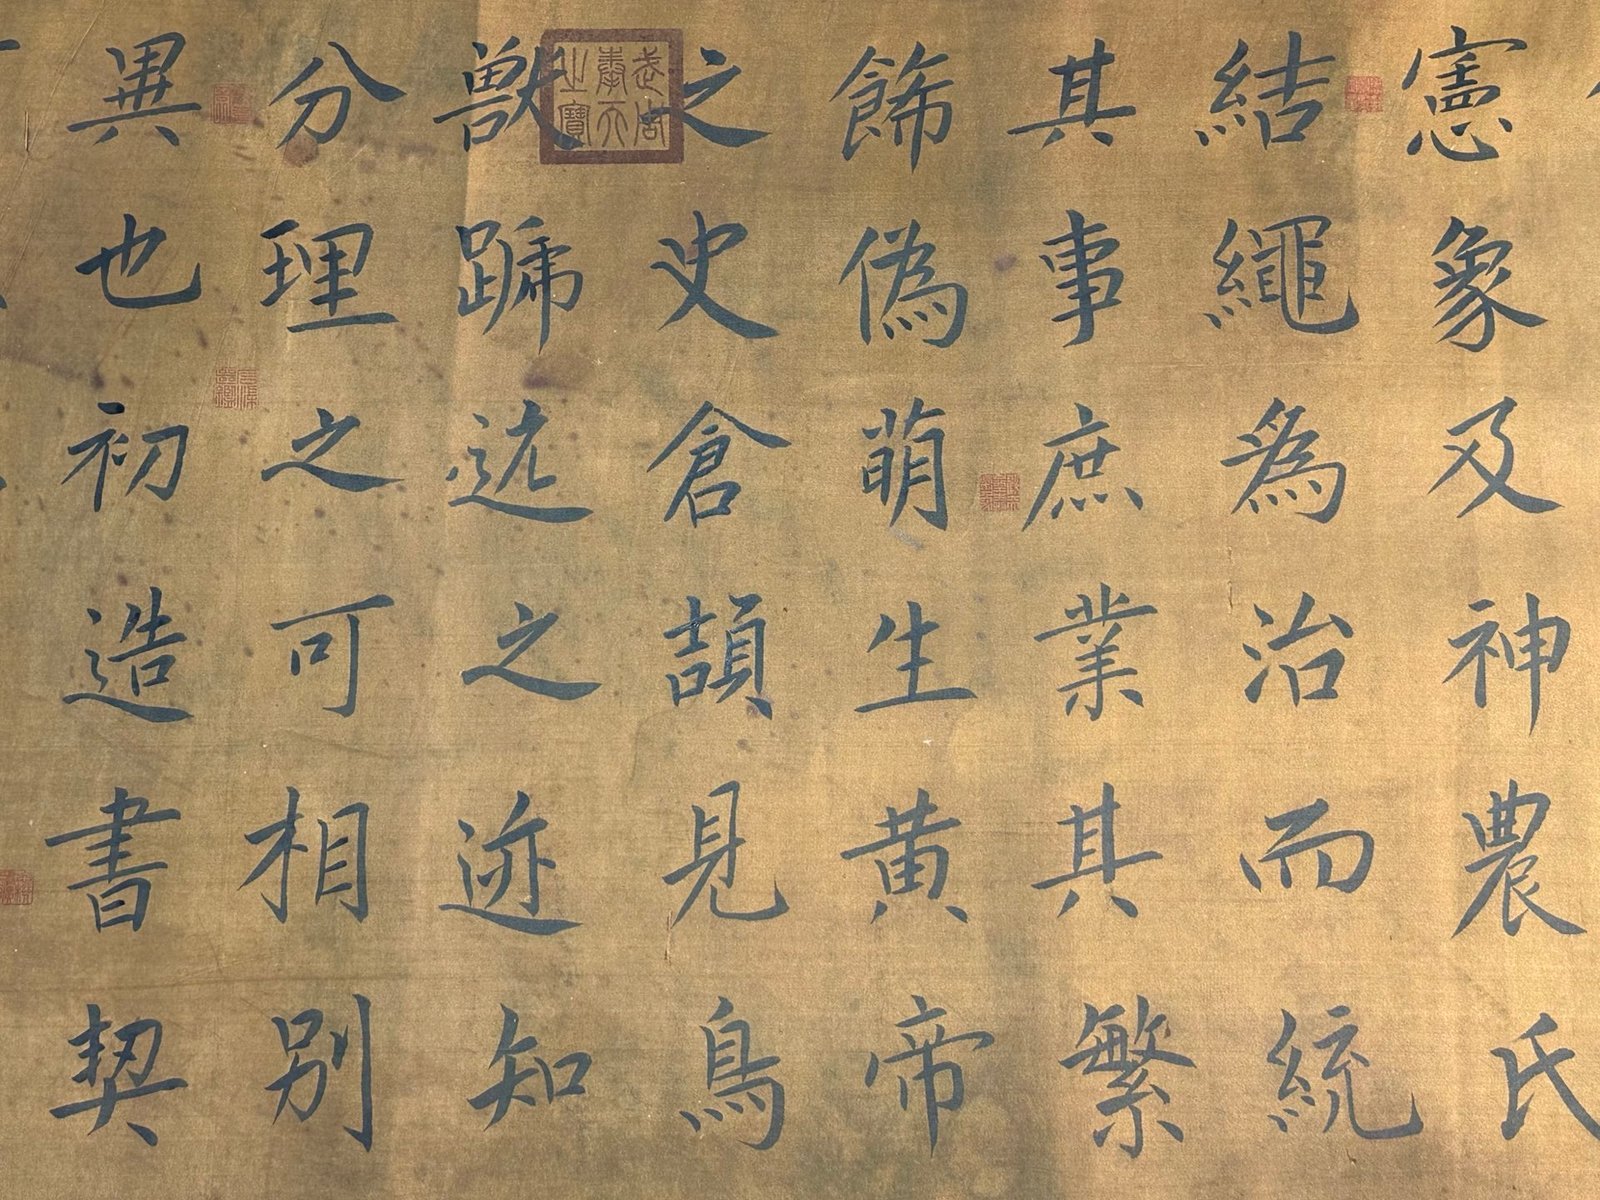 憲象及神農氏
結繩為治而統
其事庶業其繁
飾偽萌生黄帝
之史倉頡見鳥
獸蹏迒之迹知
分理之可相別
異也初造書契